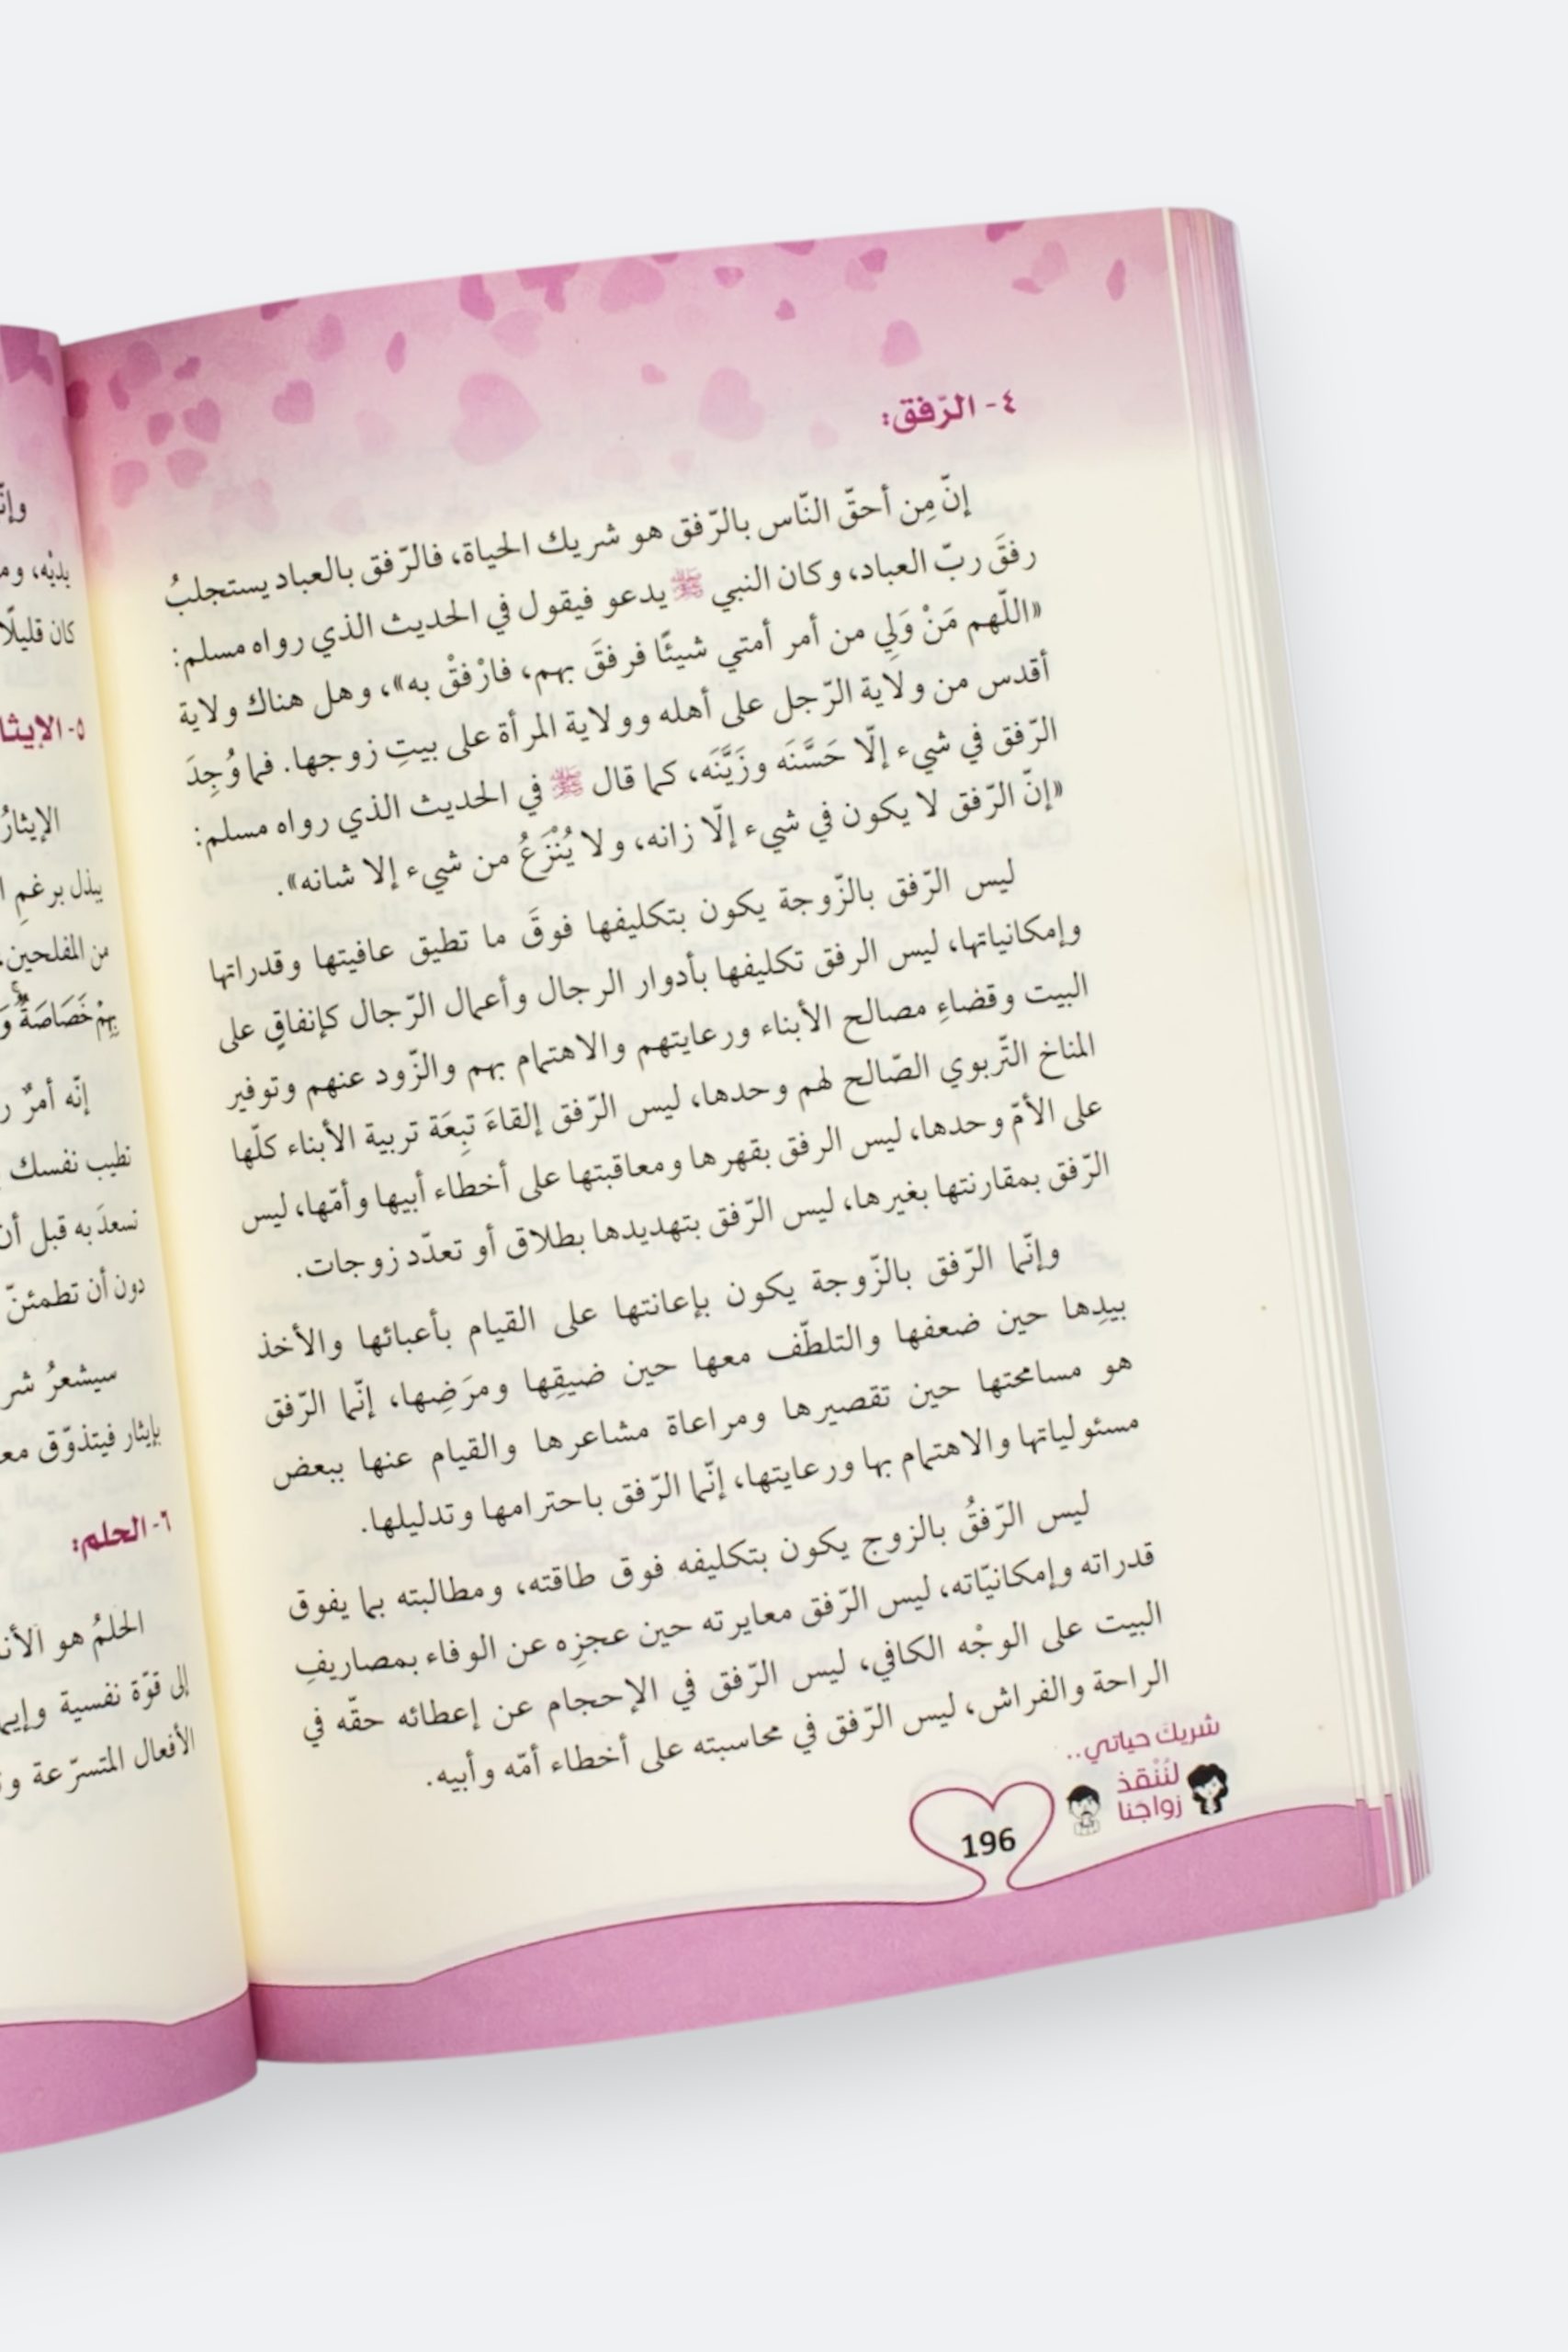 ٤- الرّفق:
إنّ مِن أحقّ النّاس بالرّفق هو شريك الحياة، فالرّفق بالعباد يستجلبُ
رفقَ ربّ العباد، وكان النبي ﷺ يدعو فيقول في الحديث الذي رواه مسلم:
«اللّهم مَنْ وَلِي من أمر أمتي شيئًا فرفقَ بهم، فارْفقْ به»، وهل هناك ولاية
أقدس من ولاية الرّجل على أهله وولاية المرأة على بيتِ زوجها. فما وُجِدَ
الرّفق في شيء إلّا حَسَّنَه وزَيَّنَه، كما قال ﷺ في الحديث الذي رواه مسلم:
«إنّ الرّفق لا يكون في شيء إلّا زانه، ولا يُنْزَعُ من شيء إلا شانه».
ليس الرّفق بالزّوجة يكون بتكليفها فوقَ ما تطيق عافيتها وقدراتها
وإمكانياتها، ليس الرفق تكليفها بأدوار الرجال وأعمال الرّجال كإنفاقٍ على
البيت وقضاءِ مصالح الأبناء ورعايتهم والاهتمام بهم والزّود عنهم وتوفير
المناخ التّربوي الصّالح لهم وحدها، ليس الرّفق إلقاءَ تبِعَة تربية الأبناء كلّها
على الأمّ وحدها، ليس الرفق بقهرها ومعاقبتها على أخطاء أبيها وأمّها، ليس
الرّفق بمقارنتها بغيرها، ليس الرّفق بتهديدها بطلاق أو تعدّد زوجات.
وإنّما الرّفق بالزّوجة يكون بإعانتها على القيام بأعبائها والأخذ
بيدِها حين ضعفها والتلطّف معها حين ضيقِها ومرَضِها، إنّما الرّفق
هو مسامحتها حين تقصيرها ومراعاة مشاعرها والقيام عنها ببعض
مسئولياتها والاهتمام بها ورعايتها، إنّما الرّفق باحترامها وتدليلها.
ليس الرّفقُ بالزوج يكون بتكليفه فوق طاقته، ومطالبته بما يفوق
قدراته وإمكانيّاته، ليس الرّفق معايرته حين عجزِه عن الوفاء بمصاريفِ
البيت على الوجْه الكافي، ليس الرّفق في الإحجام عن إعطائه حقّه في
الراحة والفراش، ليس الرّفق في محاسبته على أخطاء أمّه وأبيه.
شريك حياتي..
لنُنْقذ
زواجَنا
196
كان قليلًا
٥- الإيثا
الإيثارُ
يبذل برغمِ
من المفلحين
بِهِمْ خَصَاصَةٌ
إنّه أمرٌ
تطيب نفسك
تسعدَ به قبل أن
دون أن تطمئنّ
سيشعرُ
بإيثار فيتذوّق
٦- الحلم:
الحلمُ هو
إلى قوّة نفسية
الأفعال المتسرّعة